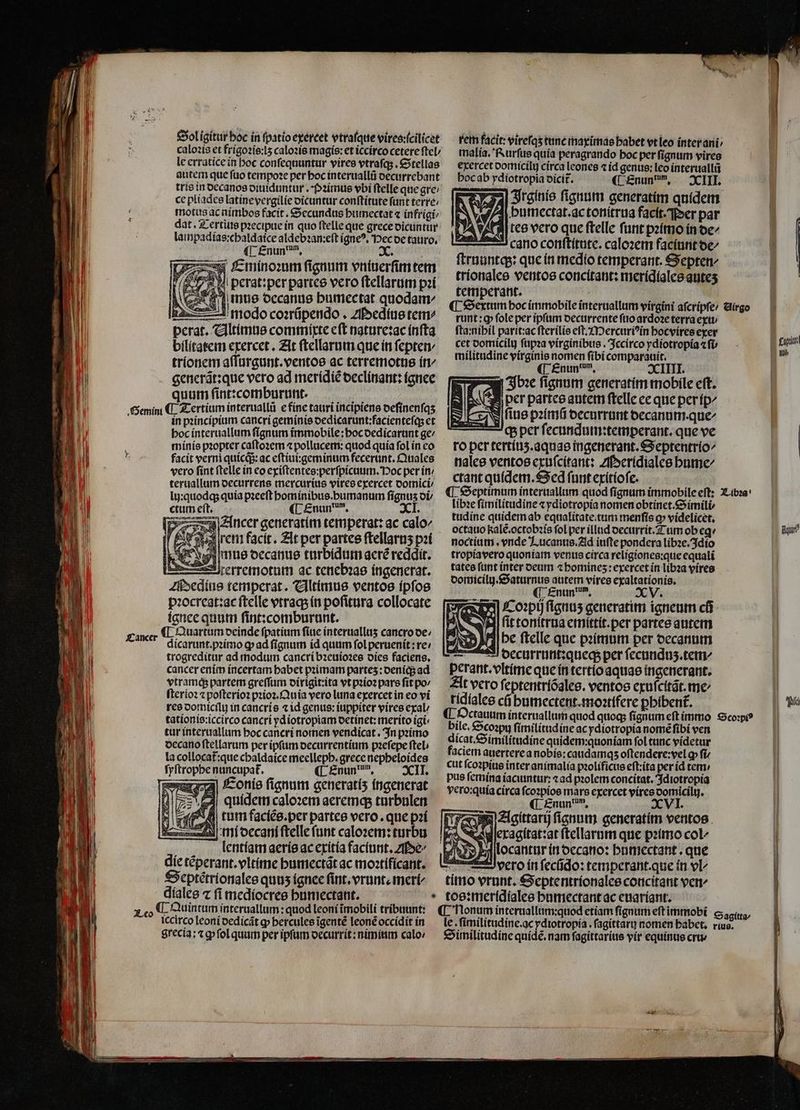 Sol igitur hoc in spatio exercet vtrasque vires:scilicet
caloris et frigoris:lꝫ caloris magis: et iccirco cetere stel
le erratice in hoc consequuntur vires vtrasqꝫ. Stellas
autem que suo tempore per hoc interuallū decurrebant
tris in decanos diuiduntur. Primus vbi stelle que gre
ce pliades latine vergilie dicuntur constitute sunt terre
motus ac nimbos facit. Secundus humectat ⁊ infrigi
dat. Tertius precipue in quo stelle que grece dicuntur
lampadias:chaldaice aldebzan:est igneꝰ. Hec de tauro.
¶ Enuntᵘᵐ. X.
Geminorum signum vniuersim tem
perat: per partes vero stellarum pri
mus decanus humectat quodam
modo corrūpendo. Medius tem
perat. Ultimus commixte est nature:ac insta
bilitatem exercet. At stellarum que in septen
trionem assurgunt. ventos ac terremotus in
generāt:que vero ad meridiē declinant: ignee
quum sint:comburunt.
Gemini ¶ Tertium interuallū e fine tauri incipiens desinensqꝫ
in principium cancri geminis dedicarunt:facientesqꝫ et
hoc interuallum signum immobile: hoc dedicarunt ge
minis propter castorem ⁊ pollucem: quod quia sol in eo
facit verni quicqꝫ: ac estiui:geminum fecerunt. Quales
vero sint stelle in eo existentes:perspicuum. Hoc per in
teruallum decurrens mercurius vires exercet domici
lij:quodqꝫ quia preest hominibus. humanum signuꝫ di
ctum est. ¶ Enuntᵘᵐ. XI.
Cancer generatim temperat: ac calo
rem facit. At per partes stellaruꝫ pri
mus decanus turbidum aerē reddit.
terremotum ac tenebras ingenerat.
Medius temperat. Ultimus ventos ipsos
procreat:ac stelle vtraqꝫ in positura collocate
ignee quum sint:comburunt.
Cancer ¶ Quartum deinde spatium siue interualluꝫ cancro de
dicarunt. primo ꝙ ad signum id quum sol peruenit: re
trogreditur ad modum cancri breuiores dies faciens.
cancer enim incertam habet primam parteꝫ: deniqꝫ ad
vtramqꝫ partem gressum dirigit:ita vt prior pars fit po
sterior ⁊ posterior prior. Quia vero luna exercet in eo vi
res domicilij in cancris ⁊ id genus: iuppiter vires exal
tationis:iccirco cancri ydiotropiam detinet: merito igi
tur interuallum hoc cancri nomen vendicat. In primo
decano stellarum per ipsum decurrentium presepe stel
la collocat̄:que chaldaice meelleph. grece nepheloides
systrophe nuncupat̄. ¶ Enuntᵘᵐ. XII.
Leonis signum generatiꝫ ingenerat
quidem calorem aeremqꝫ turbulen
tum faciēs. per partes vero. que pri
mi decani stelle sunt calorem: turbu
lentiam aeris ac exitia faciunt. Me
die tēperant. vltime humectāt ac mortificant.
Septētrionales quuꝫ ignee sint. vrunt. meri
diales ⁊ si mediocres humectant.
Leo ¶ Quintum interuallum: quod leoni īmobili tribuunt:
iccirco leoni dedicāt ꝙ hercules īgentē leonē occidit in
grecia: ⁊ ꝙ sol quum per ipsum decurrit: nimium calo
rem facit: viresqꝫ tunc maximas habet vt leo inter ani
malia. Rursus quia peragrando hoc per signum vires
exercet domicilij circa leones ⁊ id genus: leo interuallū
hoc ab ydiotropia dicit̄. ¶ Enuntᵘᵐ. XIII.
Virginis signum generatim quidem
humectat. ac tonitrua facit. Per par
tes vero que stelle sunt primo in de
cano constitute. calorem faciunt de
struuntqꝫ: que in medio temperant. Septen
trionales ventos concitant: meridiales auteꝫ
temperant.
¶ Sextum hoc immobile interuallum virgini ascripse Uirgo
runt: ꝙ sole per ipsum decurrente suo ardore terra exu
sta:nihil parit:ac sterilis est. Mercuriꝰ in hoc vires exer
cet domicilij supra virginibus. Iccirco ydiotropia ⁊ si
militudine virginis nomen sibi comparauit.
¶ Enuntᵘᵐ. XIIII.
Libre signum generatim mobile est.
per partes autem stelle ee que per ip
sius primū decurrunt decanum. que
qꝫ per secundum:temperant. que ve
ro per tertiuꝫ. aquas ingenerant. Septentrio
nales ventos exuscitant: Meridiales hume
ctant quidem. Sed sunt exitiose.
¶ Septimum interuallum quod signum immobile est: Libra
libre similitudine ⁊ ydiotropia nomen obtinet. Simili
tudine quidem ab equalitate. tum mensis ꝙ videlicet.
octauo kalē. octobris sol per illud decurrit. Tum ob eq
noctium. vnde Lucanus. Ad iuste pondera libre. Idio
tropia vero quoniam venus circa religiones:que equali
tates sunt inter deum ⁊ homines: exercet in libra vires
domicilij. Saturnus autem vires exaltationis.
¶ Enuntᵘᵐ. XV.
Scorpij signuꝫ generatim igneum cū
sit tonitrua emittit. per partes autem
he stelle que primum per decanum
decurrunt:quecqꝫ per secunduꝫ. tem
perant. vltime que in tertio aquas ingenerant.
At vero septentriōales. ventos exuscitāt. me
ridiales cū humectent. mortifere phibent̄.
¶ Octauum interuallum quod quoqꝫ signum est immo Scorpiꝰ
bile. Scorpij similitudine ac ydiotropia nomē sibi ven
dicat. Similitudine quidem:quoniam sol tunc videtur
faciem auertere a nobis: caudamqꝫ ostendere: vel ꝙ si
cut scorpius inter animalia prolificus est:ita per id tem
pus semina iacuntur: ⁊ ad prolem concitat. Idiotropia
vero:quia circa scorpios mars exercet vires domicilij.
¶ Enuntᵘᵐ. XVI.
Sagittarij signum generatim ventos
exagitat:at stellarum que primo col
locantur in decano: humectant. que
vero in secūdo: temperant. que in vl
timo vrunt. Septentrionales concitant ven
tos:meridiales humectant ac euariant.
¶ Nonum interuallum:quod etiam signum est immobi Sagitta
le. similitudine. ac ydiotropia. sagittarij nomen habet. rius.
Similitudine quidē. nam sagittarius vir equinus cru